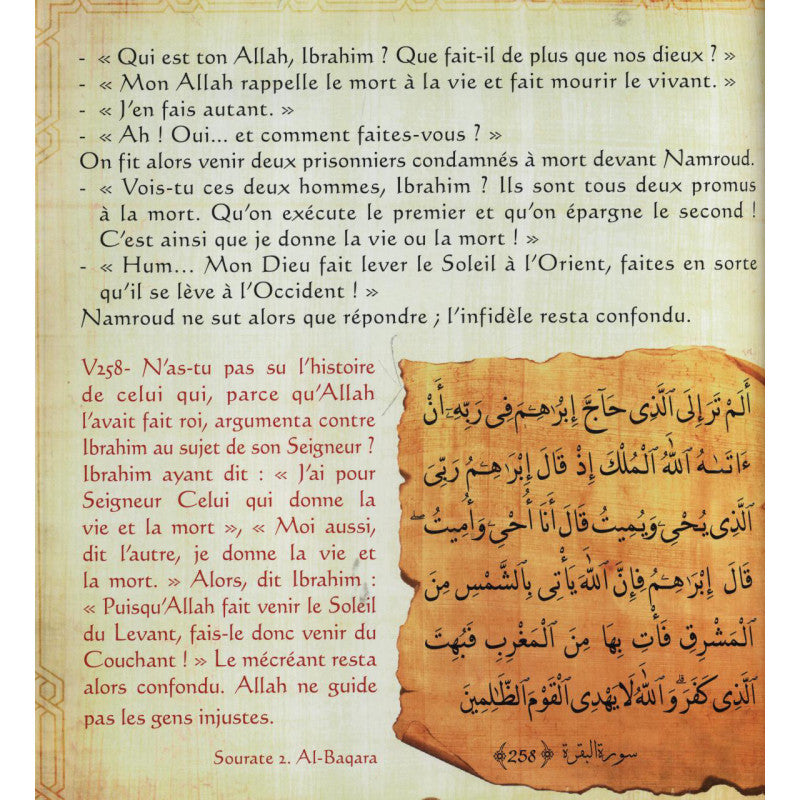 - « Qui est ton Allah, Ibrahim ? Que fait-il de plus que nos dieux ? »
- « Mon Allah rappelle le mort à la vie et fait mourir le vivant. »
- « J'en fais autant. »
- « Ah ! Oui... et comment faites-vous ? »
On fit alors venir deux prisonniers condamnés à mort devant Namroud.
- « Vois-tu ces deux hommes, Ibrahim ? Ils sont tous deux promus
à la mort. Qu'on exécute le premier et qu'on épargne le second !
C'est ainsi que je donne la vie ou la mort ! »
- « Hum... Mon Dieu fait lever le Soleil à l'Orient, faites en sorte
qu'il se lève à l'Occident ! »
Namroud ne sut alors que répondre ; l'infidèle resta confondu.
V258- N'as-tu pas su l'histoire
de celui qui, parce qu'Allah
l'avait fait roi, argumenta contre
Ibrahim au sujet de son Seigneur ?
Ibrahim ayant dit : « J'ai pour
Seigneur Celui qui donne la
vie et la mort », « Moi aussi,
dit l'autre, je donne la vie et
la mort. » Alors, dit Ibrahim :
« Puisqu'Allah fait venir le Soleil
du Levant, fais-le donc venir du
Couchant ! » Le mécréant resta
alors confondu. Allah ne guide
pas les gens injustes.
Sourate 2. Al-Baqara
أَلَمْ تَرَ إِلَى ٱلَّذِى حَآجَّ إِبْرَٰهِـۧمَ فِى رَبِّهِۦٓ أَنْ
ءَاتَىٰهُ ٱللَّهُ ٱلْمُلْكَ إِذْ قَالَ إِبْرَٰهِـۧمُ رَبِّىَ
ٱلَّذِى يُحْىِۦ وَيُمِيتُ قَالَ أَنَا۠ أُحْىِۦ وَأُمِيتُ ۖ
قَالَ إِبْرَٰهِـۧمُ فَإِنَّ ٱللَّهَ يَأْتِى بِٱلشَّمْسِ مِنَ
ٱلْمَشْرِقِ فَأْتِ بِهَا مِنَ ٱلْمَغْرِبِ فَبُهِتَ
ٱلَّذِى كَفَرَ ۗ وَٱللَّهُ لَا يَهْدِى ٱلْقَوْمَ ٱلظَّٰلِمِينَ
سورة البقرة ﴿258﴾